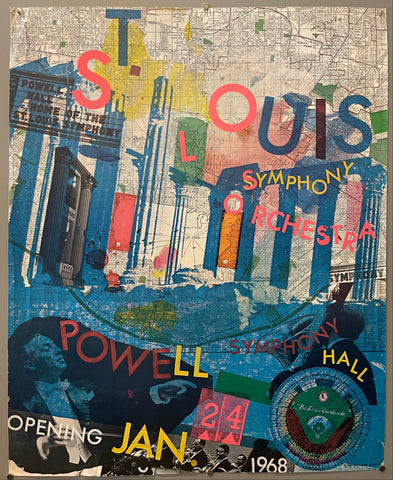 ST. LOUIS
SYMPHONY
ORCHESTRA
POWELL
HALL
HOME OF THE
ST. LOUIS SYMPHONY
SYMPHONY
POWELL SYMPHONY
HALL
St. Louis Cardinals
OPENING JAN. 24 1968